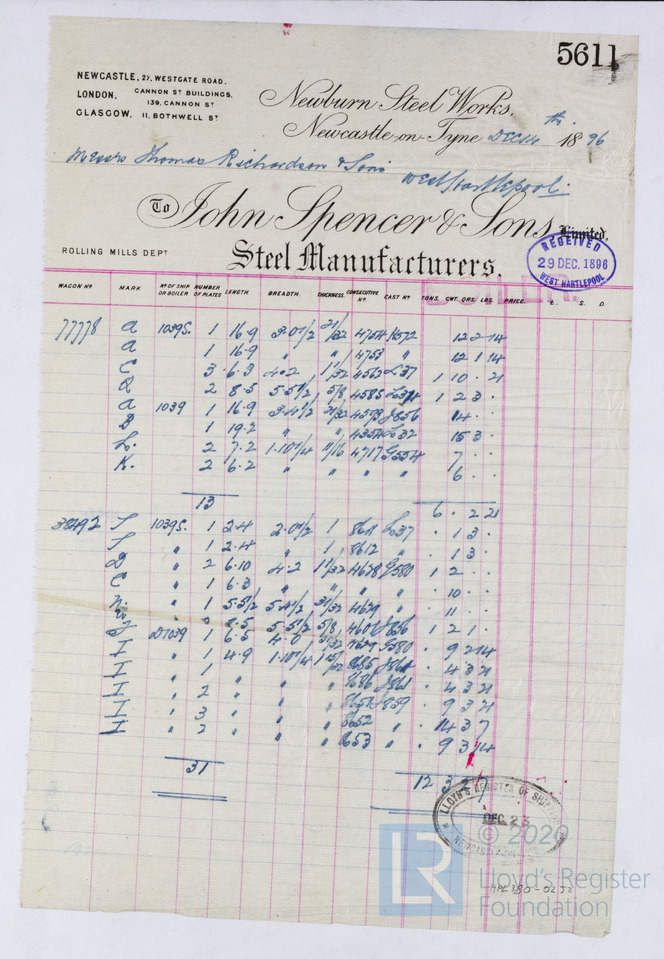 5611
NEWCASTLE, 27, WESTGATE ROAD.
LONDON, CANNON ST BUILDINGS,
139, CANNON ST
GLASGOW, 11, BOTHWELL ST
Newburn Steel Works,
Newcastle-on-Tyne DEC 14th 1896
Messrs Thomas Richardson & Sons
West Hartlepool.
To John Spencer & Sons, Limited,
Steel Manufacturers.
ROLLING MILLS DEPT
RECEIVED
29 DEC. 1896
WEST HARTLEPOOL
WAGON No MARK No OF SHIP OR BOILER NUMBER OF PLATES LENGTH. BREADTH. THICKNESS. CONSECUTIVE No CAST No TONS. CWT. QRS. LBS. PRICE. £. S. D.
77778 a 1039S. 1 16.9 3.0 1/2 21/32 4754 12 2 14
a 1 16.9 " " 4753 " 12 1 14
C 3 6.3 4.2 11/32 4563 L37 1 10 . 21
2 8.5 5.5 1/2 5/8 4585 1 2 3 .
a 1039 1 16.9 3.4 1/2 21/32 4573 J856 14 . .
B 1 19.2 " " L32 15 3 .
L. 2 7.2 1.10 1/4 11/16 4717 G554 7 . .
K. 2 6.2 " " " " 6 . .
13 6 . 2 21
38492 S 1039S. 1 2.4 2.0 1/2 1 8611 L37 . 1 3 .
S " 1 2.4 " 1 8612 " . 1 3 .
D " 2 6.10 4.2 11/32 4628 G580 1 2 . .
C " 1 6.3 " " " " . 10 . .
" 1 5.5 1/2 5.4 1/2 31/32 4629 " . 11 . .
" 8.5 5.5 1/2 5/8 J856 1 2 1 .
D1039 1 6.5 4.0 G580 . 9 2 14
H " 1 4.9 1.10 1/4 8685 J861 . 4 3 21
H " 1 " " " 8686 J861 . 4 3 21
H " 2 " " " 859 . 9 3 21
H " 3 " " " 8652 " . 14 3 7
H " 2 " " " 8653 " . 9 3 14
31 12 3
LLOYD'S REGISTER OF SHIPPING
DEC. 23
© 2020
Lloyd's Register
Foundation
HPL380-0252